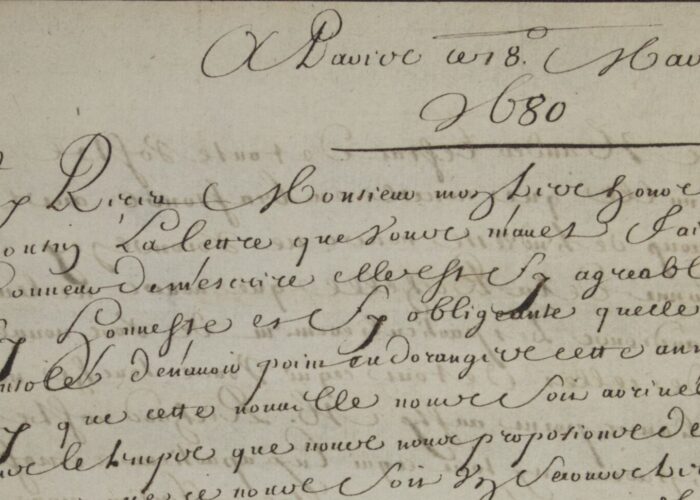 A Paris ce 18. Mar
1680
Receu Monsieur mon tres honor
Cousin La lettre que vous mavez fai
honneur demescrire elle est Sy agreabl
Sy honneste et Sy obligeante quelle
console denavoir point eu dorangers cette ann
que cette nouvelle nous Soit arivee
le temps que nous nous proposions de
ce nous Soit